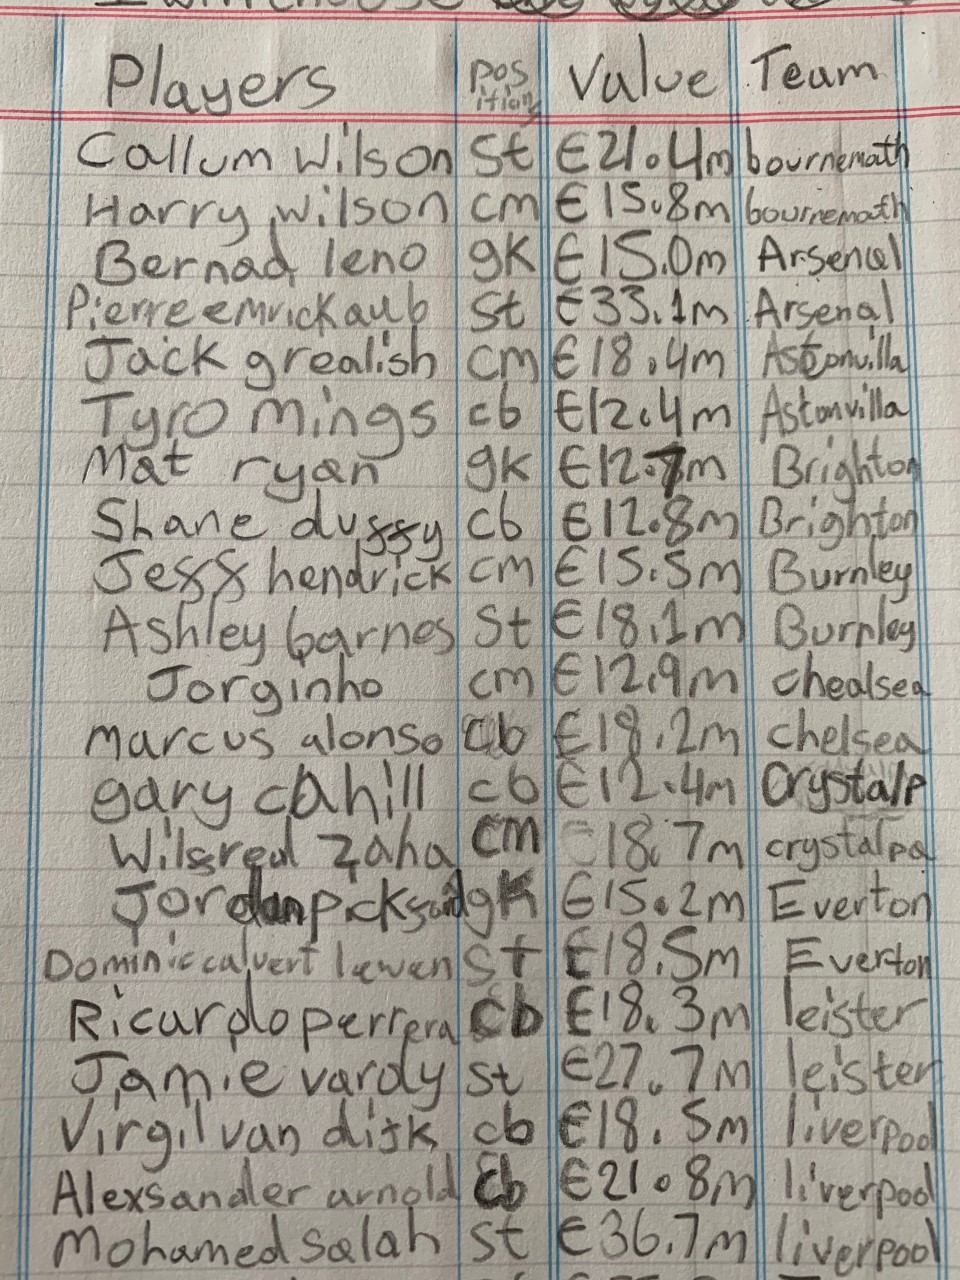 Players position Value Team
Callum Wilson St €21.4m bournemath
Harry wilson cm €15.8m bournemath
Bernad leno gk €15.0m Arsenal
Pierre emrick aub St €33.1m Arsenal
Jack grealish cm €18.4m Astonvilla
Tyro mings cb €12.4m Astonvilla
Mat ryan gk €12.7m Brighton
Shane duffy cb €12.8m Brighton
Jeff hendrick cm €15.5m Burnley
Ashley barnes St €18.1m Burnley
Jorginho cm €12.9m chealsea
marcus alonso cb €18.2m chelsea
gary cahill cb €12.4m Crystalp
Wilfred Zaha cm €18.7m crystalpa
Jordan pickford gk €15.2m Everton
Dominic calvert lewen St €18.5m Everton
Ricardo perrera cb €18.3m leister
Jamie vardy st €27.7m leister
Virgil van dijk cb €18.5m liverpool
Alexsander arnold cb €21.8m liverpool
Mohamed salah st €36.7m liverpool